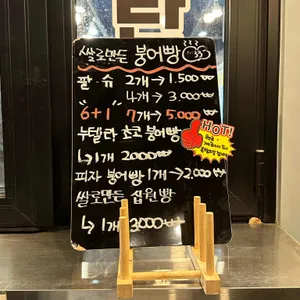 쌀로만든 붕어빵
팥·슈 2개→1.500₩
4개→3.000₩
"6+1" 7개→5.000₩
누텔라 초코 붕어빵
↳1개 2000₩
HOT!
피자 붕어빵 1개→2.000₩
쌀로만든 십원빵
↳1개 3000₩